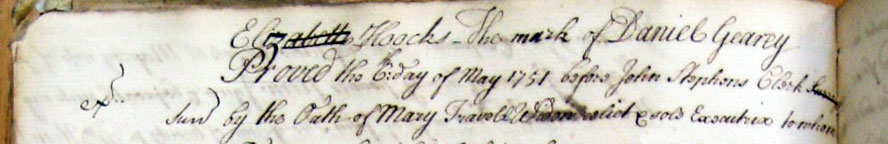 Elizabeth Hocks - The mark of Daniel Gearey
Proved the 6 day of May 1751 before John Stephens Clerk
Surr by the Oath of Mary Travell Widow relict & sole Executrix to whom